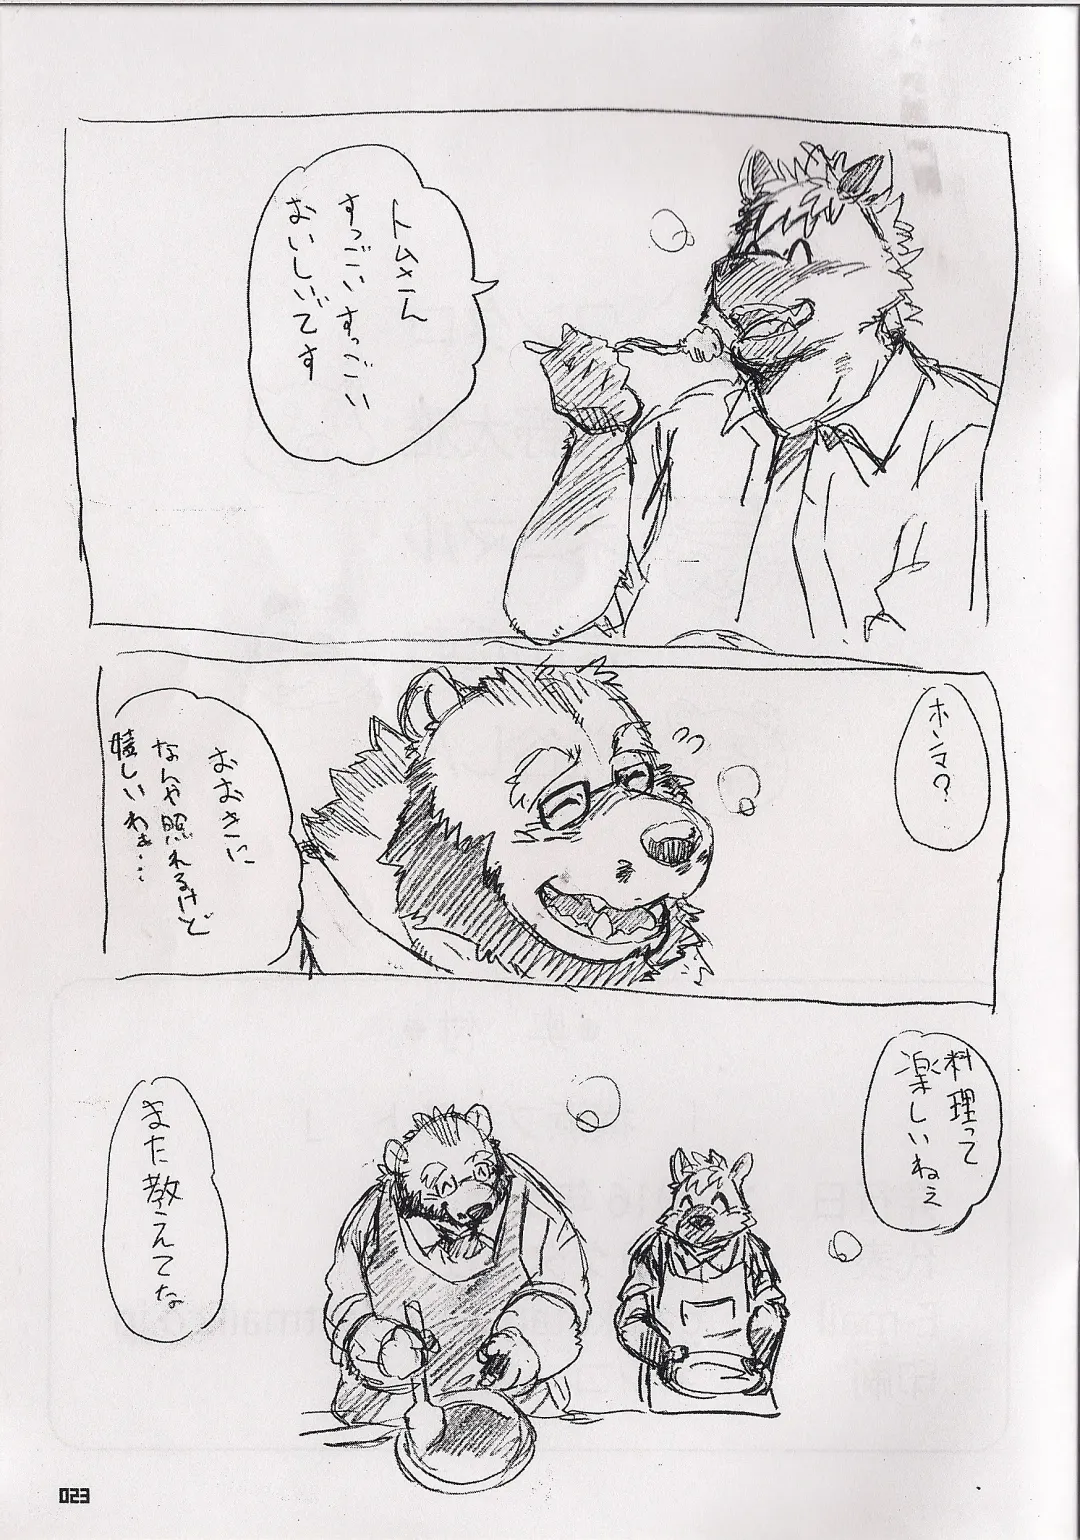 トムさん
すっごいすっごい
おいしいです
ホンマ?
おおきに
なんや照れるけど
嬉しいわぁ…
料理って
楽しいねぇ
また教えてな
023